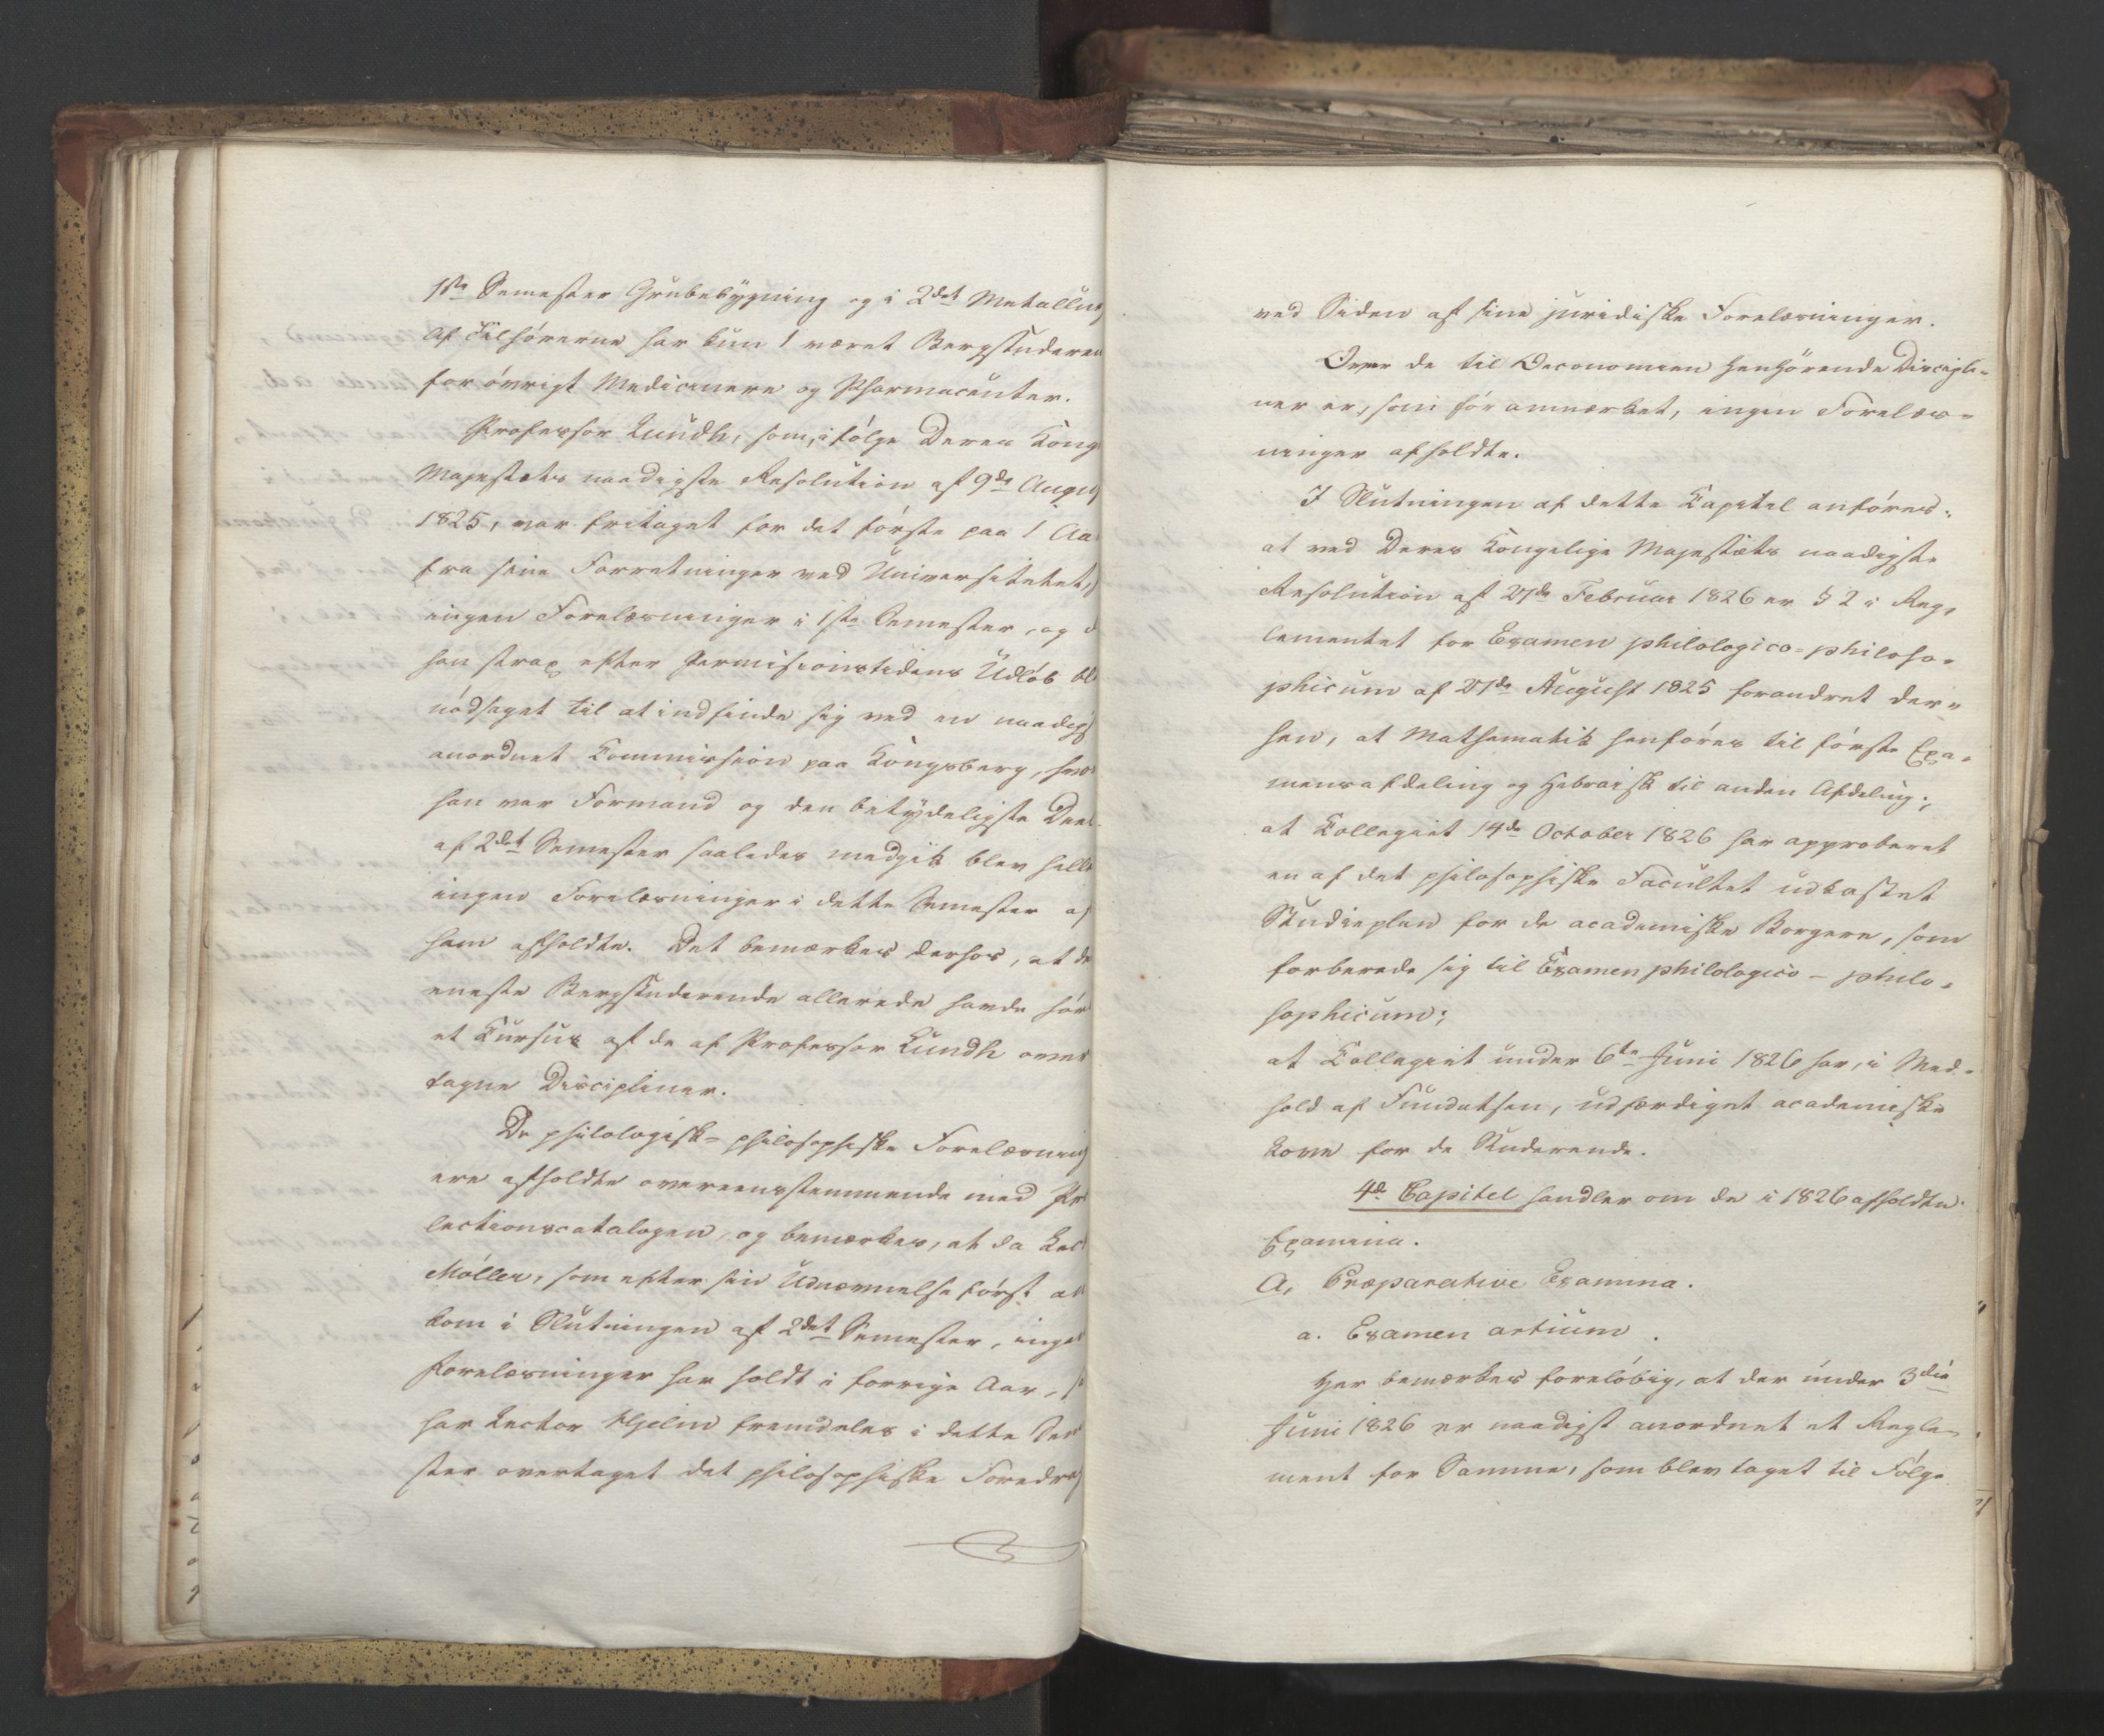 1ste Semester Grubebygning og i 2det Metallurg
Af Tilhörerne har kun 1 været Bergstuderen
for övrigt Medicinere og Pharmaceuter.
Professor Lundh, som, ifölge Deres Kong
Majestæts naadigste Resolution af 9de Augu
1825, var fritaget for det förste paa 1 Aa
fra sine Forretninger ved Universitetet,
ingen Forelæsninger i 1ste Semester, og d
han strax efter Permissionstidens Udlöb bl
nödsaget til at indfinde sig ved en naadigs
anordnet Commission paa Kongsberg, hvo
han var Formand og den betydeligste Deel
af 2det Semester saaledes medgik blev hell
ingen Forelæsninger i dette Semester af
ham afholdte. Det bemærkes derhos, at de
eneste Bergstuderende allerede havde hör
et Cursus af de af Professor Lundh over
tagne Discipliner.
De philologisk-philosophiske Forelæsning
ere afholdte overeensstemmende med Præ
lectionscatalogen, og bemærkes, at da Lec
Möller, som efter sin Udnævnelse först an
kom i Slutningen af 2det Semester, inge
Forelæsninger har holdt i forrige Aar,
har Lector Hjelm fremdeles i dette Sem
ster overtaget det philosophiske Foredrag
ved Siden af sine juridiske Forelæsninger.
Over de til Oeconomien henhörende Discipli-
ner er, som för anmærket, ingen Forelæs-
ninger afholdte.
I Slutningen af dette Capitel anföres:
at ved Deres Kongelige Majestæts naadigste
Resolution af 27de Februar 1826 er § 2 i Reg-
lementet for Examen philologico-philoso-
phicum af 27de August 1825 forandret der-
hen, at Mathematik henföres til förste Exa-
mensafdeling og Hebraisk til anden Afdeling;
at Collegiet 14de October 1826 har approberet
en af det philosophiske Facultet udkastet
Studieplan for de academiske Borgere, som
forberede sig til Examen philologico-philo-
sophicum;
at Collegiet under 6te Juni 1826 har, i Med-
hold af Fundatsen, udfærdiget academiske
Love for de Studerende.
4de Capitel handler om de i 1826 afholdte
Examina.
A, Præparative Examina.
a. Examen artium.
Her bemærkes foreløbig, at der under 3die
Juni 1826 er naadigst anordnet et Regle-
ment for Samme, som blev taget til Fölge